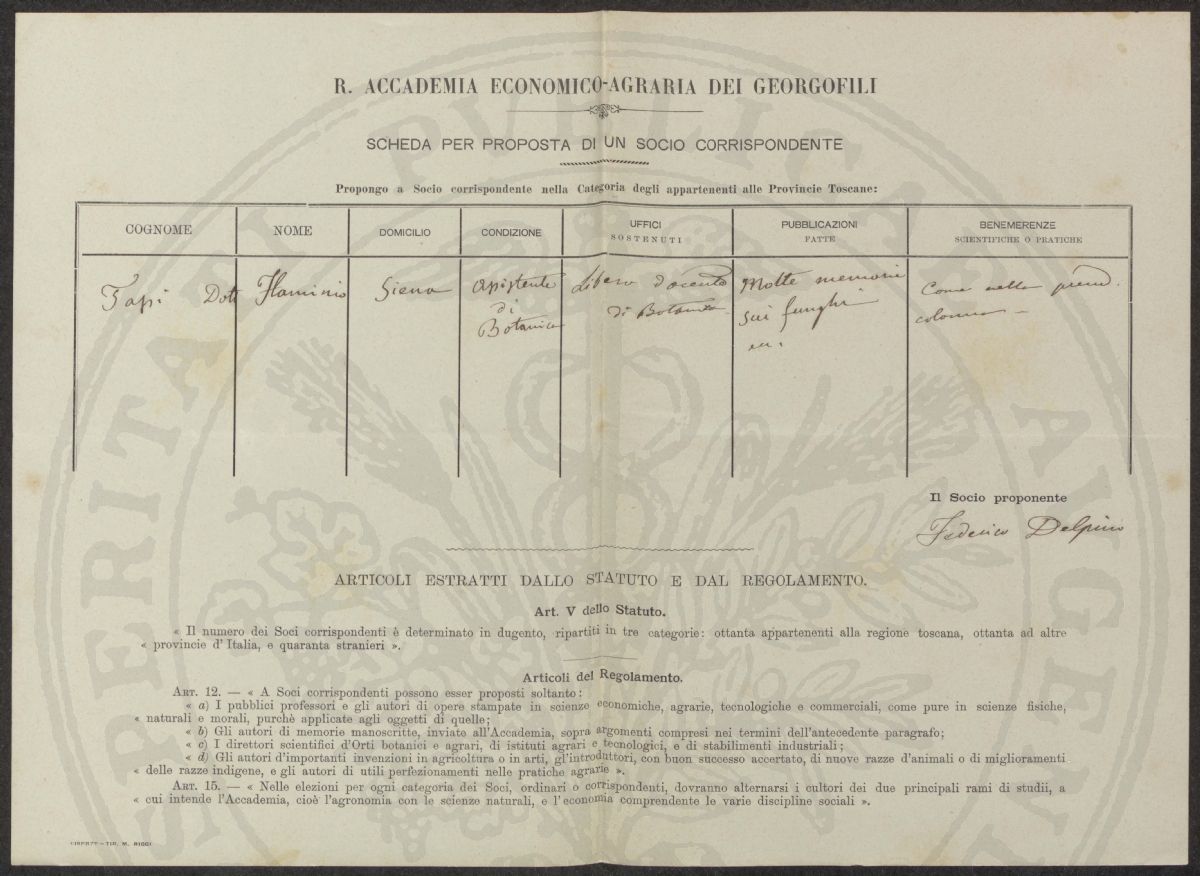 R. ACCADEMIA ECONOMICO-AGRARIA DEI GEORGOFILI
SCHEDA PER PROPOSTA DI UN SOCIO CORRISPONDENTE
Propongo a Socio corrispondente nella Categoria degli appartenenti alle Provincie Toscane:
COGNOME NOME DOMICILIO CONDIZIONE UFFICI SOSTENUTI PUBBLICAZIONI FATTE BENEMERENZE SCIENTIFICHE O PRATICHE
Tassi Dott Flaminio Siena Assistente Libero docente Molte memorie Come nella preced.
di di Botanica sui funghi colonna
Botanica
Il Socio proponente
Federico Delpino
ARTICOLI ESTRATTI DALLO STATUTO E DAL REGOLAMENTO.
Art. V dello Statuto.
« Il numero dei Soci corrispondenti è determinato in dugento, ripartiti in tre categorie: ottanta appartenenti alla regione toscana, ottanta ad altre
« provincie d'Italia, e quaranta stranieri ».
Articoli del Regolamento.
ART. 12. — « A Soci corrispondenti possono esser proposti soltanto:
« a) I pubblici professori e gli autori di opere stampate in scienze economiche, agrarie, tecnologiche e commerciali, come pure in scienze fisiche,
« naturali e morali, purchè applicate agli oggetti di quelle;
« b) Gli autori di memorie manoscritte, inviate all'Accademia, sopra argomenti compresi nei termini dell'antecedente paragrafo;
« c) I direttori scientifici d'Orti botanici e agrari, di istituti agrari e tecnologici, e di stabilimenti industriali;
« d) Gli autori d'importanti invenzioni in agricoltura o in arti, gl'introduttori, con buon successo accertato, di nuove razze d'animali o di miglioramenti
« delle razze indigene, e gli autori di utili perfezionamenti nelle pratiche agrarie ».
ART. 15. — « Nelle elezioni per ogni categoria dei Soci, ordinari o corrispondenti, dovranno alternarsi i cultori dei due principali rami di studii, a
« cui intende l'Accademia, cioè l'agronomia con le scienze naturali, e l'economia comprendente le varie discipline sociali ».
TIP. M. RICCI
PROSPERITATI PUBLICAE AUGENDAE